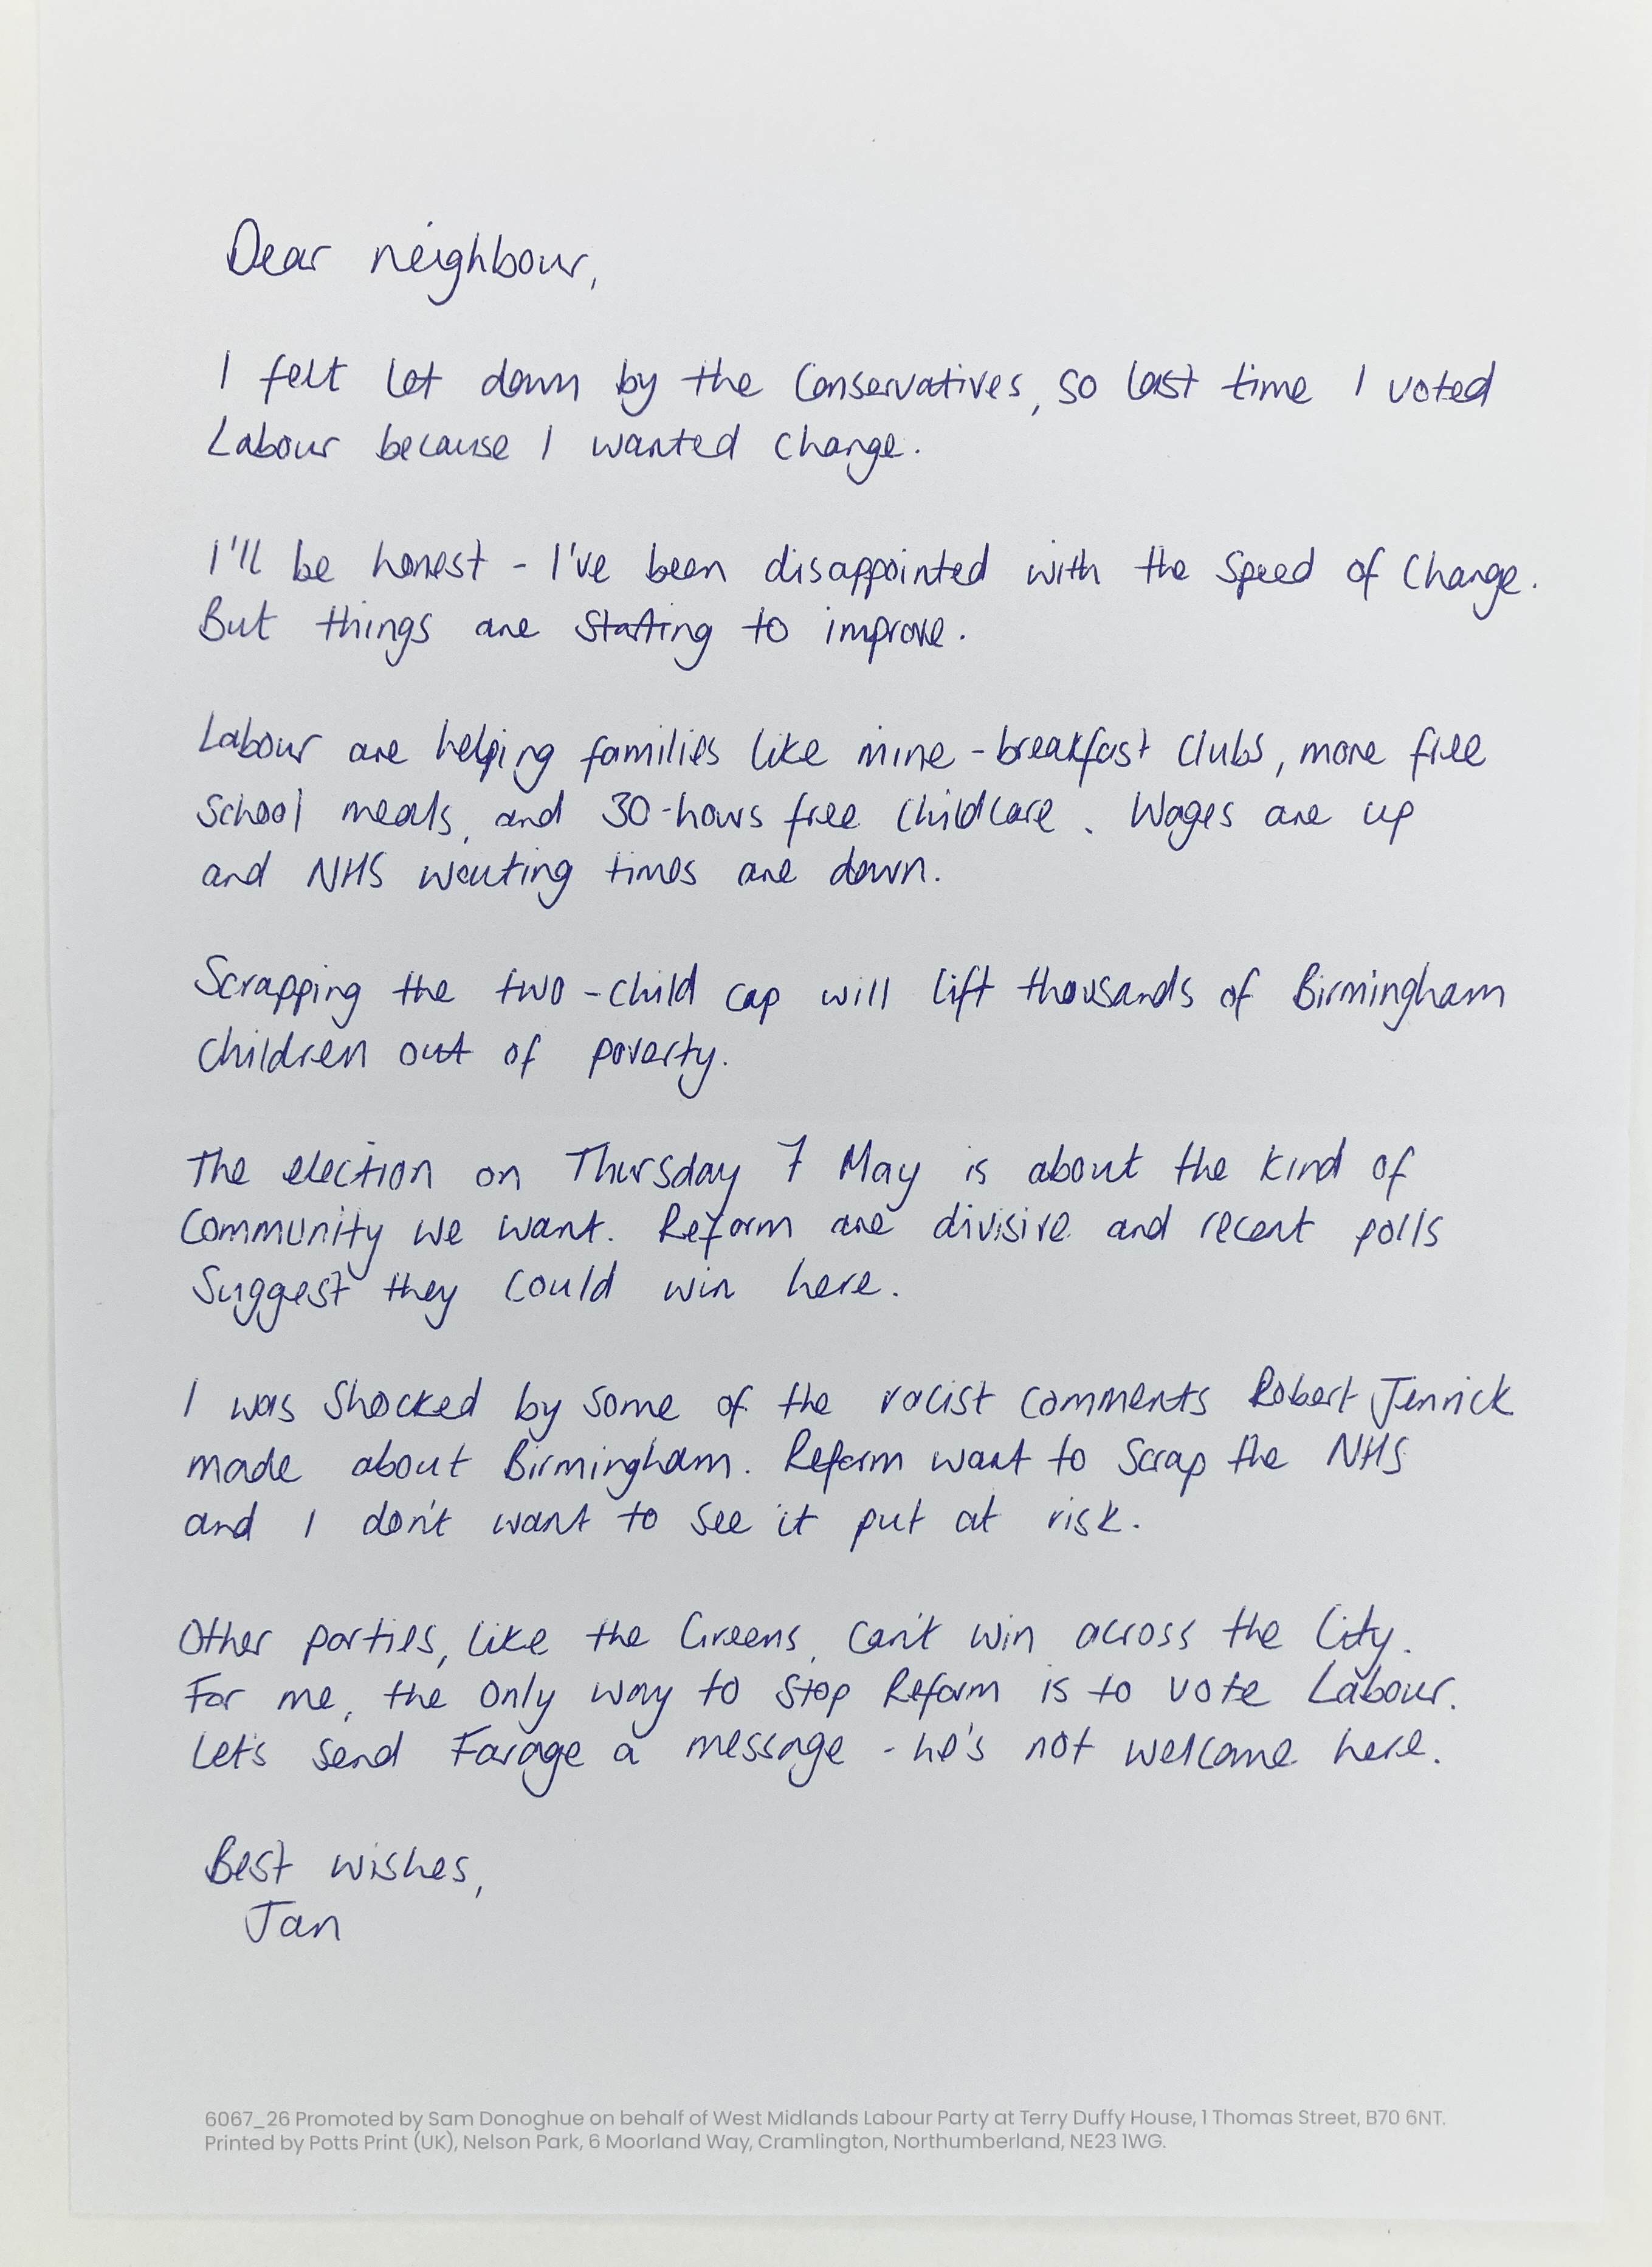 Dear neighbour,
I felt let down by the Conservatives, so last time I voted
Labour because I wanted change.
I'll be honest - I've been disappointed with the speed of change.
But things are starting to improve.
Labour are helping families like mine - breakfast clubs, more free
school meals, and 30-hours free childcare. Wages are up
and NHS waiting times are down.
Scrapping the two-child cap will lift thousands of Birmingham
children out of poverty.
The election on Thursday 7 May is about the kind of
community we want. Reform are divisive and recent polls
suggest they could win here.
I was shocked by some of the racist comments Robert Jenrick
made about Birmingham. Reform want to scrap the NHS
and I don't want to see it put at risk.
Other parties, like the Greens, can't win across the city.
For me, the only way to stop Reform is to vote Labour.
Let's send Farage a message - he's not welcome here.
Best wishes,
Jan
6067_26 Promoted by Sam Donoghue on behalf of West Midlands Labour Party at Terry Duffy House, 1 Thomas Street, B70 6NT.
Printed by Potts Print (UK), Nelson Park, 6 Moorland Way, Cramlington, Northumberland, NE23 1WG.